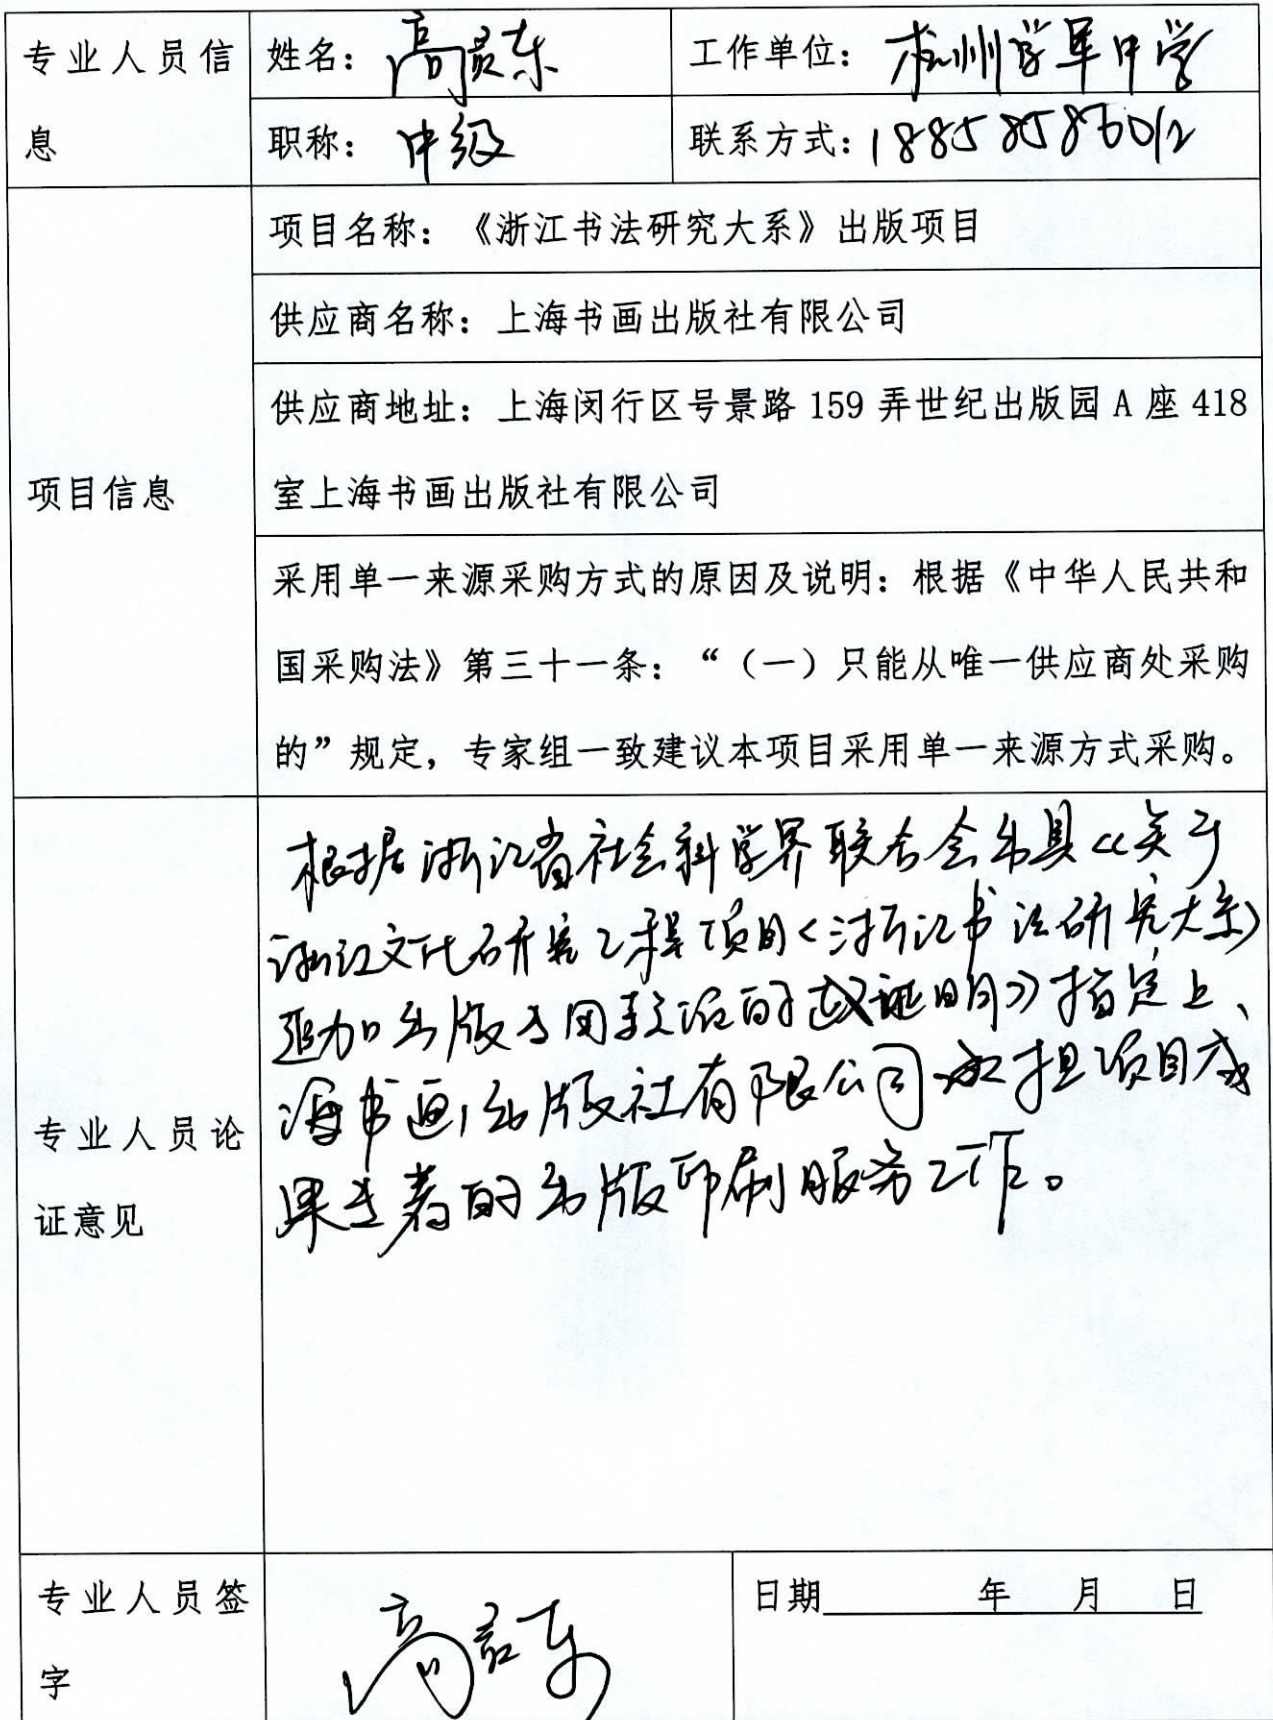 专业人员信息
姓名：高 东
工作单位：杭州学军中学
职称：中级
联系方式：18858586012
项目信息
项目名称：《浙江书法研究大系》出版项目
供应商名称：上海书画出版社有限公司
供应商地址：上海闵行区号景路 159 弄世纪出版园 A 座 418
室上海书画出版社有限公司
采用单一来源采购方式的原因及说明：根据《中华人民共和
国采购法》第三十一条：“（一）只能从唯一供应商处采购
的”规定，专家组一致建议本项目采用单一来源方式采购。
专业人员论
证意见
根据浙江省社会科学界联合会出具《关于
浙江文化研究工程项目〈浙江书法研究大系〉
追加出版专用 的 证明》指定上
海书画出版社有限公司承担项目成
果专著的出版印刷服务工作。
专业人员签
字
高 东
日期 年 月 日